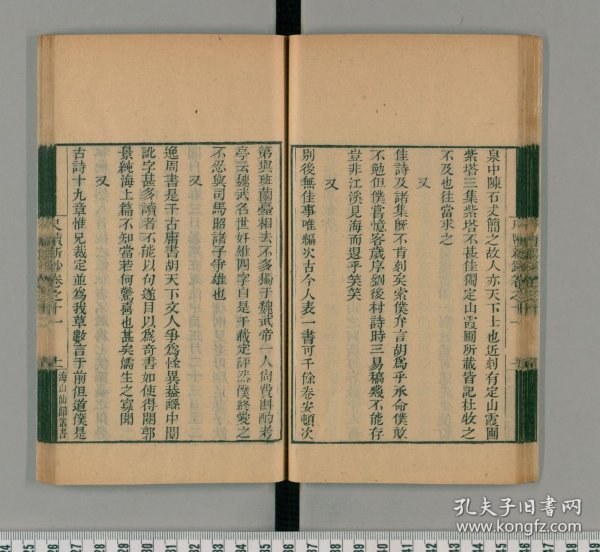 泉中陳石丈簡之故人亦天下士也近刻有定山霞關
紫塔三集紫塔不甚佳獨定山霞關所載皆記杜牧之
不及也往當求之
又
佳詩及諸集既不肯刻矣索僕弁言胡為乎承命僕敢
不勉但僕嘗憶客歲序劉後村詩時三易稿幾不能存
豈非江溪見海而退乎笑笑
又
別後無佳事唯編次古今人表一書可千餘卷安頓次
第與班蘭臺相去不多獨于魏武帝一人尚費斟酌考
亭云魏武名世奸雄四字自是千載定評然僕終愛之
不忍與司馬昭諸子爭雄也
又
逸周書是千古庸書胡天下文人爭為怪異葢繇中間
訛字甚多讀者不能以句遂目以為奇書如使得閱郭
景純海上篇不知當若何驚寫也甚矣儒生之寡聞
又
古詩十九章惟兄裁定並為我草數言于前但道僕是
尺牘新鈔卷之十一
十二
海山仙館叢書
孔夫子旧书网
www.kongfz.com
24 25 26 27 28 29 30 31 32 33 34 35 36 37 38 39